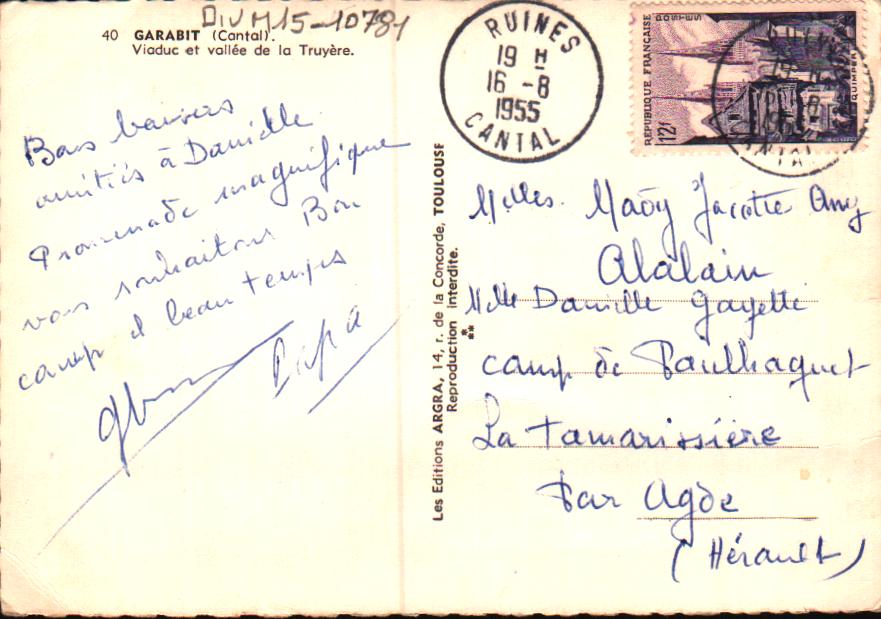 DIVM15-10781
40 GARABIT (Cantal).
Viaduc et vallée de la Truyère.
Bons baisers
amitiés à Danielle
Promenade magnifique
vous souhaitons Bon
camp et beau temps
Papa
Les Editions ARGRA, 14, r. de la Concorde, TOULOUSE
Reproduction interdite.
RUINES
19 H
16 -8
1955
CANTAL
RÉPUBLIQUE FRANÇAISE
POSTES
12F
QUIMPER
Melles. Jacotte Any
Alalain
Melle Danielle Gayetti
camp de Paulhaguet
La Tamarissière
Par Agde
(Hérault)